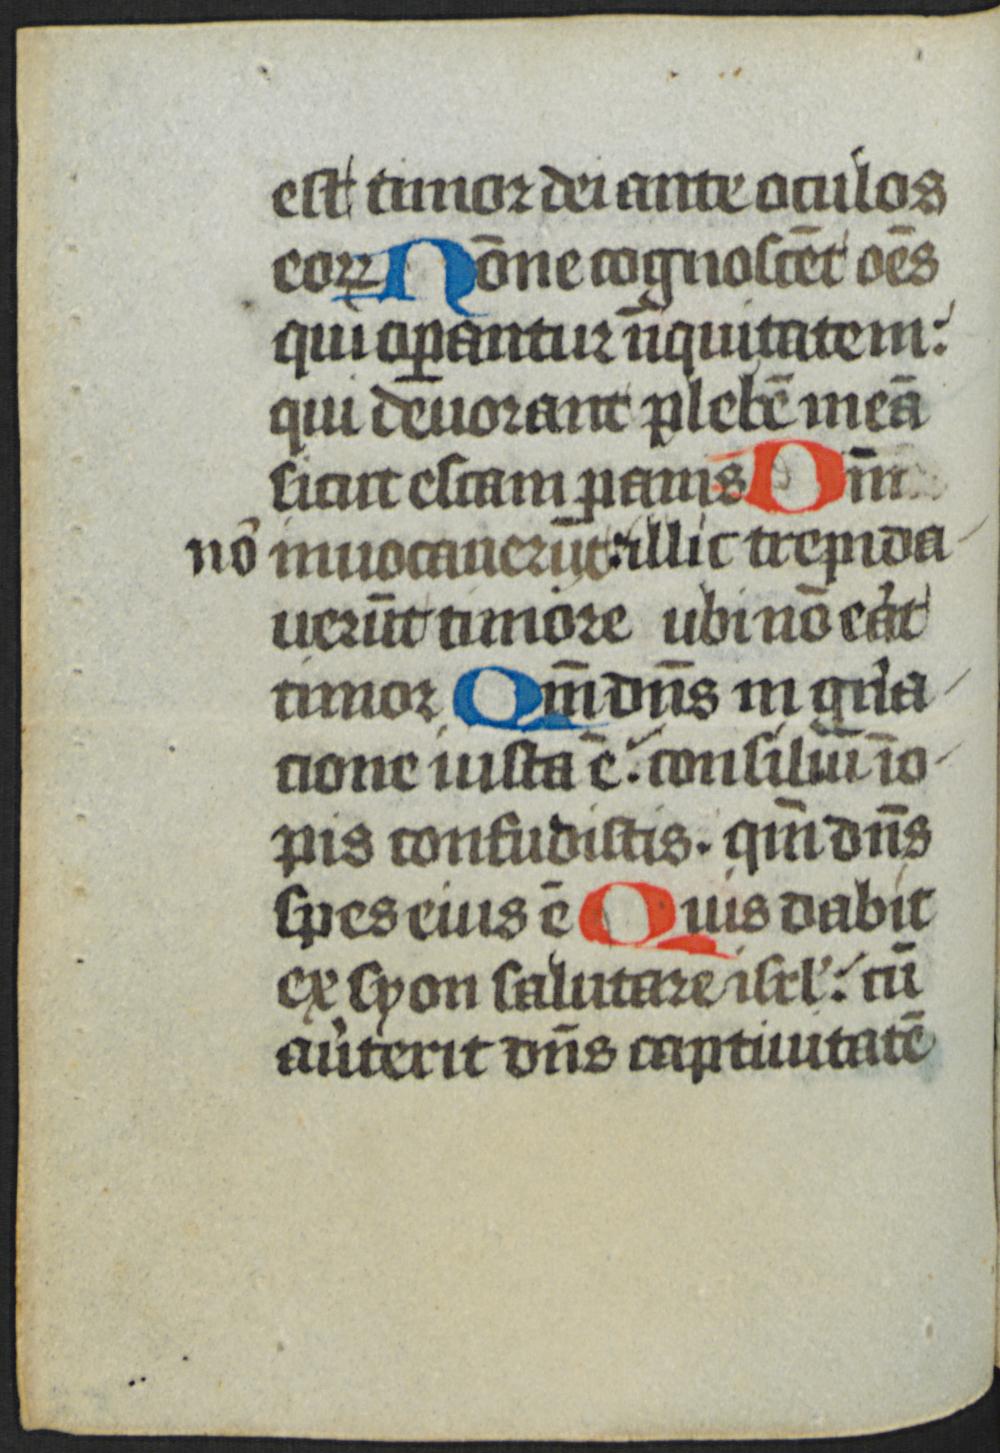 est timor dei ante oculos
eoꝝ Nōne cognoscēt oēs
qui oꝑantur īiquitatem:
qui deuorant plebē meā
sicut escam panis Dn̄m
nō inuocauerūt: illic trepida
uerūt timore ubi nō erat
timor Qm̄ dn̄s in gn̄a
cione iusta ē: consiliū īo
pis confudistis. qm̄ dn̄s
spes eius ē Quis dabit
ex syon salutare isrl': cū
auterit dn̄s captiuitatē